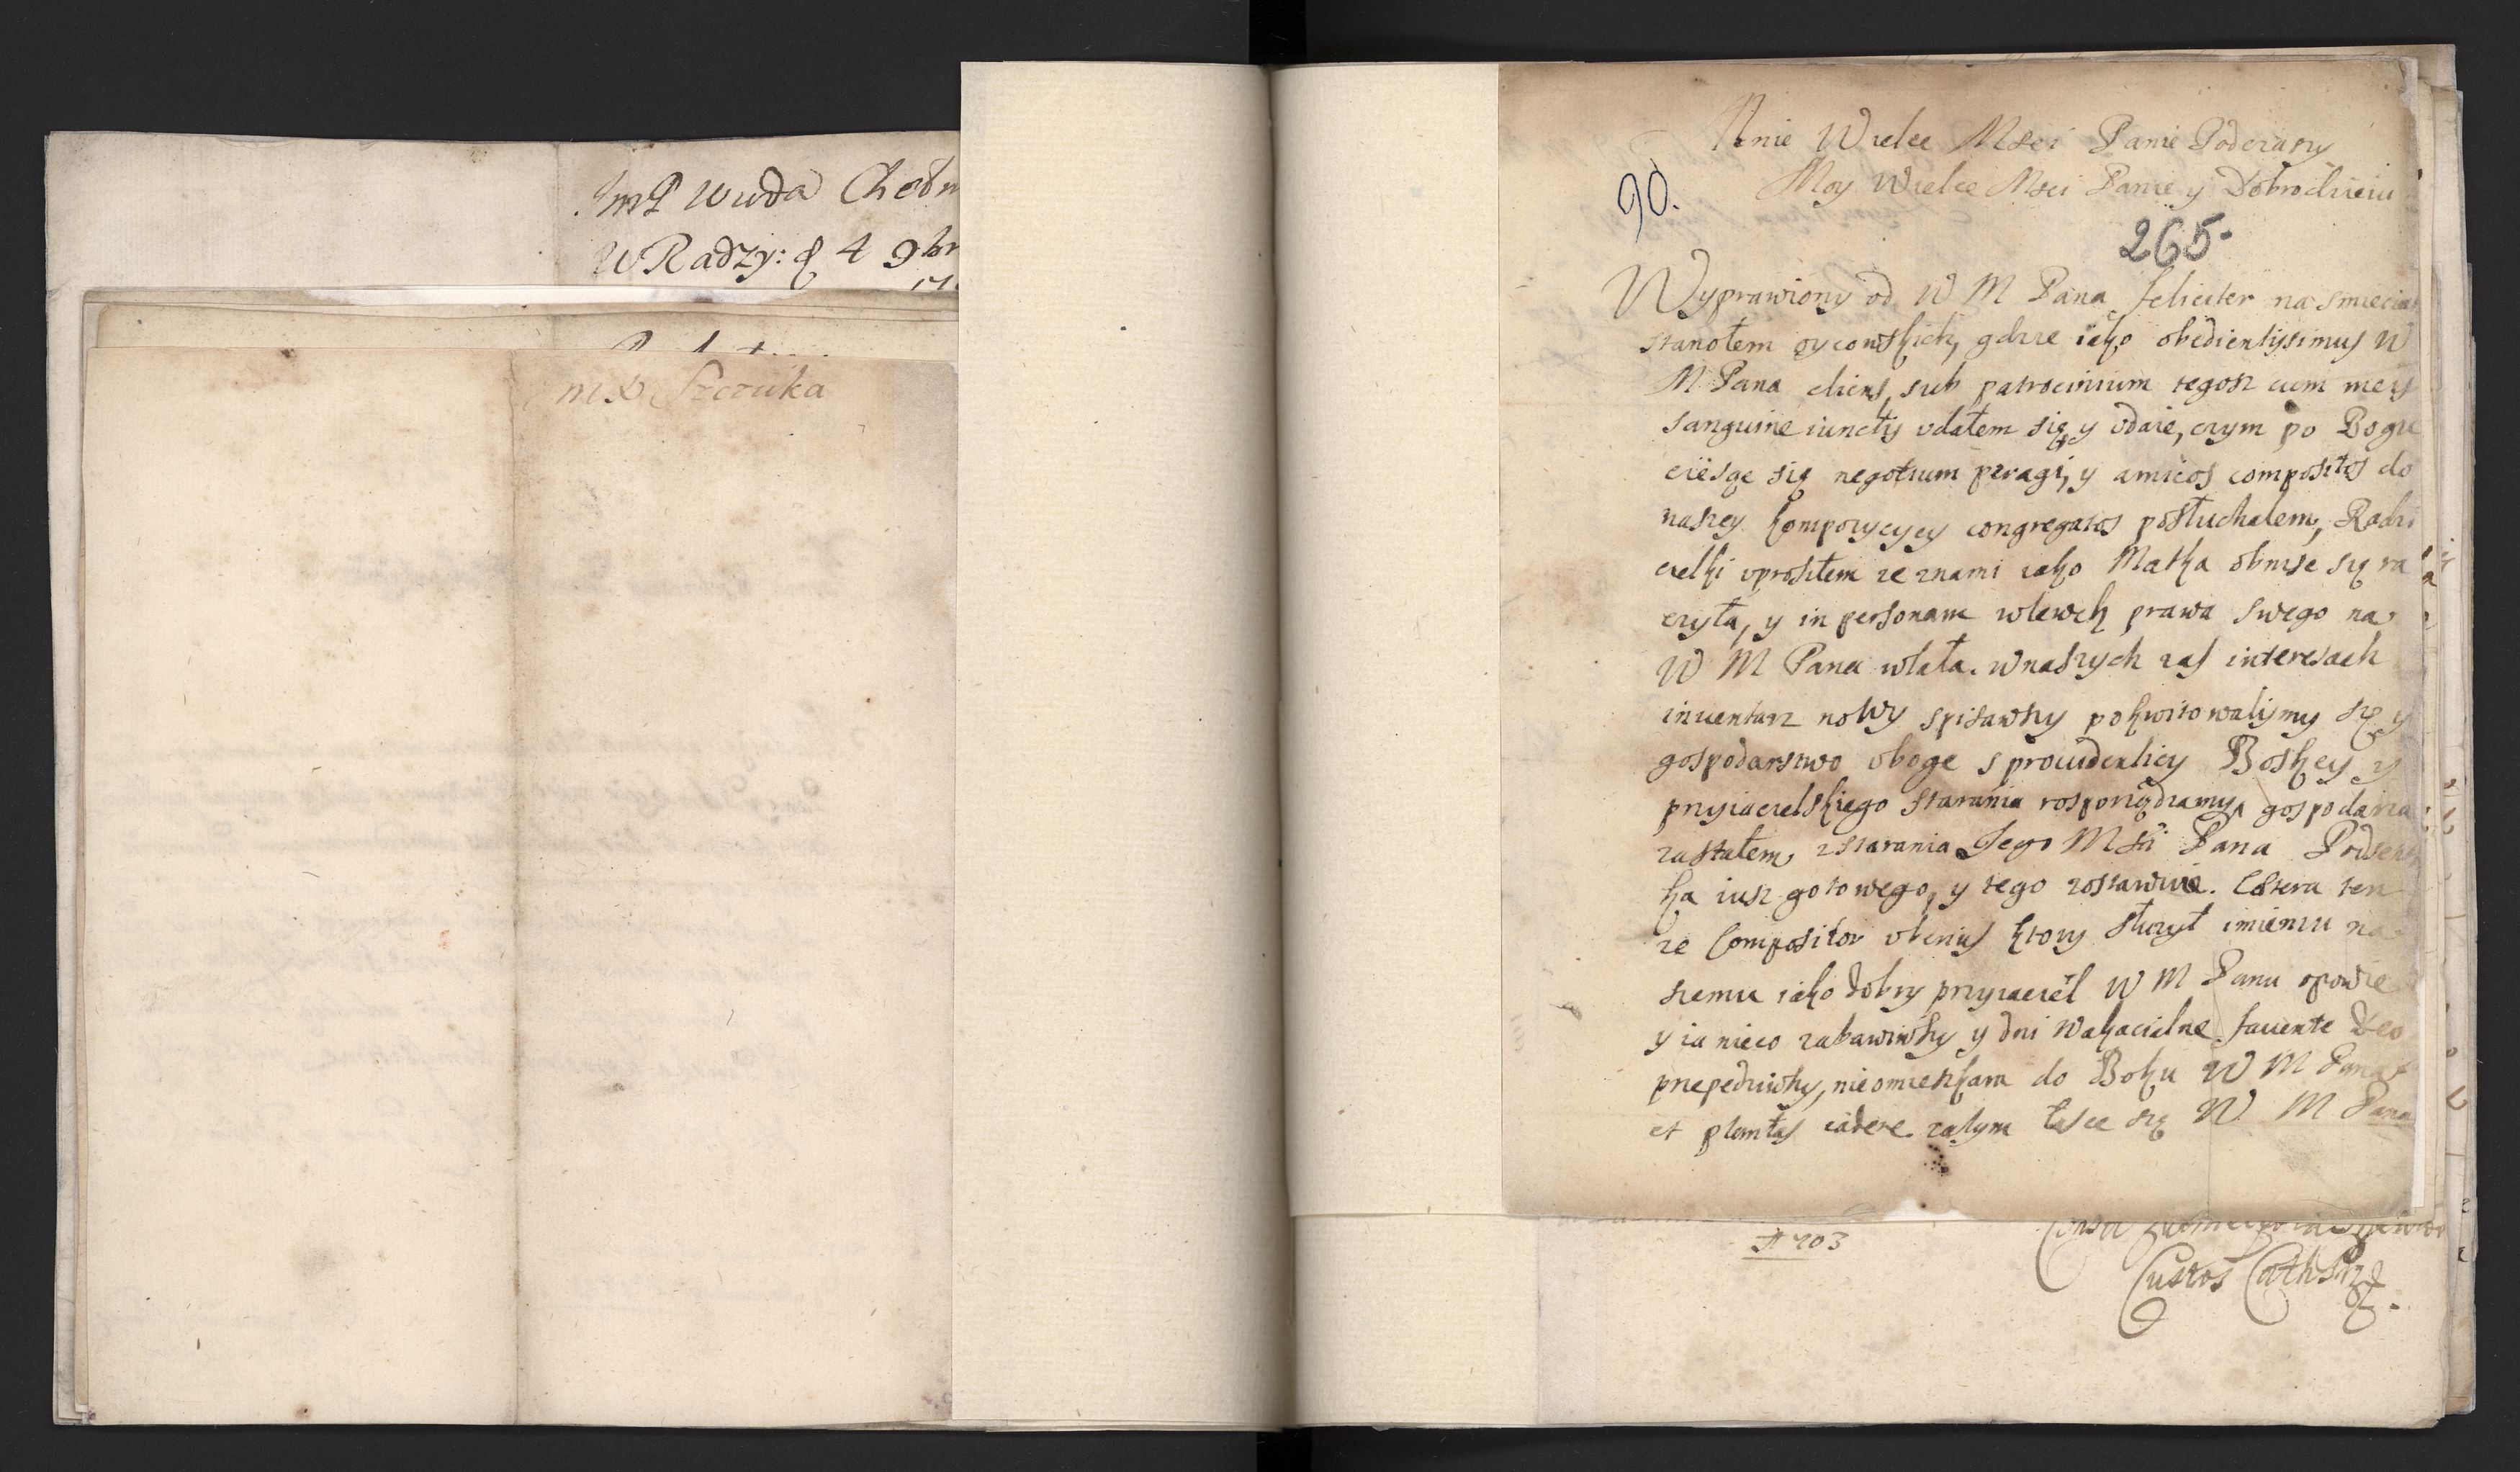 JmP Wuda Chełm
W Radzy: d 4 9br
m P Szczuka
Mnie Wielce Mści Panie Podczaszy
Moy Wielce Mści Panie y Dobrodzieiu
90.
265.
Wyprawiony od W M Pana feliciter na smiecia
stanołem oycowskich, gdzie iako obedientissimus W
M Pana cliens, sub patrocinium tegosz cum meis
sanguine iunctis udałem się, y udaie, czym po Bogu
ciesze się negotium peragi, y amicos compositos do
naszey kompozycyey congregatos posłuchałem, Radzi
cielki uprosiłem ze znami iako Matka obnise się ra
czyła, y in personam wlewek prawa swego na
W M Pana wlała. w naszych zas interesach
inuentarz nowy spisawszy pokwitowalismy się y
gospodarstwo uboge s prouidenticy Boskey y
przyiacielskiego starania rosporządzamy, gospodarza
zastałem, zstarania Jego Mści Pana Podsęd
ka iusz gotowego, y tego zostawuie. Cætera ten
ze Compositor uberius ktory służył imieniu na
szemu iako dobry przyiaciel W M Panu opowie
y ia nieco zabawiwszy y dni wakacialne fauente Deo
przepedziwszy, nieomieszkam do Boku W M Pana
et plantas cadere. zatym łasce się W M Pana
A 703
Custos Cath